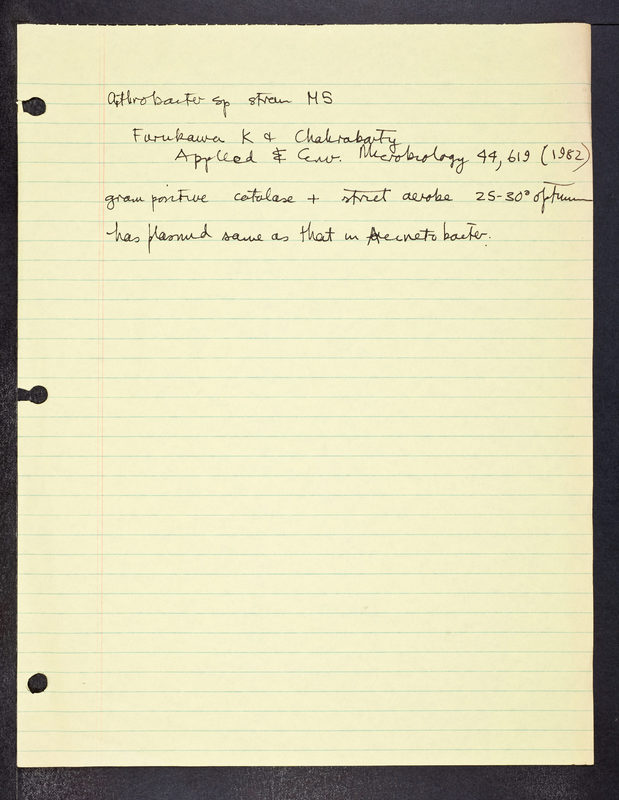 Arthrobacter sp strain M5
Furukawa K & Chakrabarty
Applied & Env. Microbiology 44, 619 (1982)
gram positive catalase + strict aerobe 25-30° optimum
has plasmid same as that in Acinetobacter.